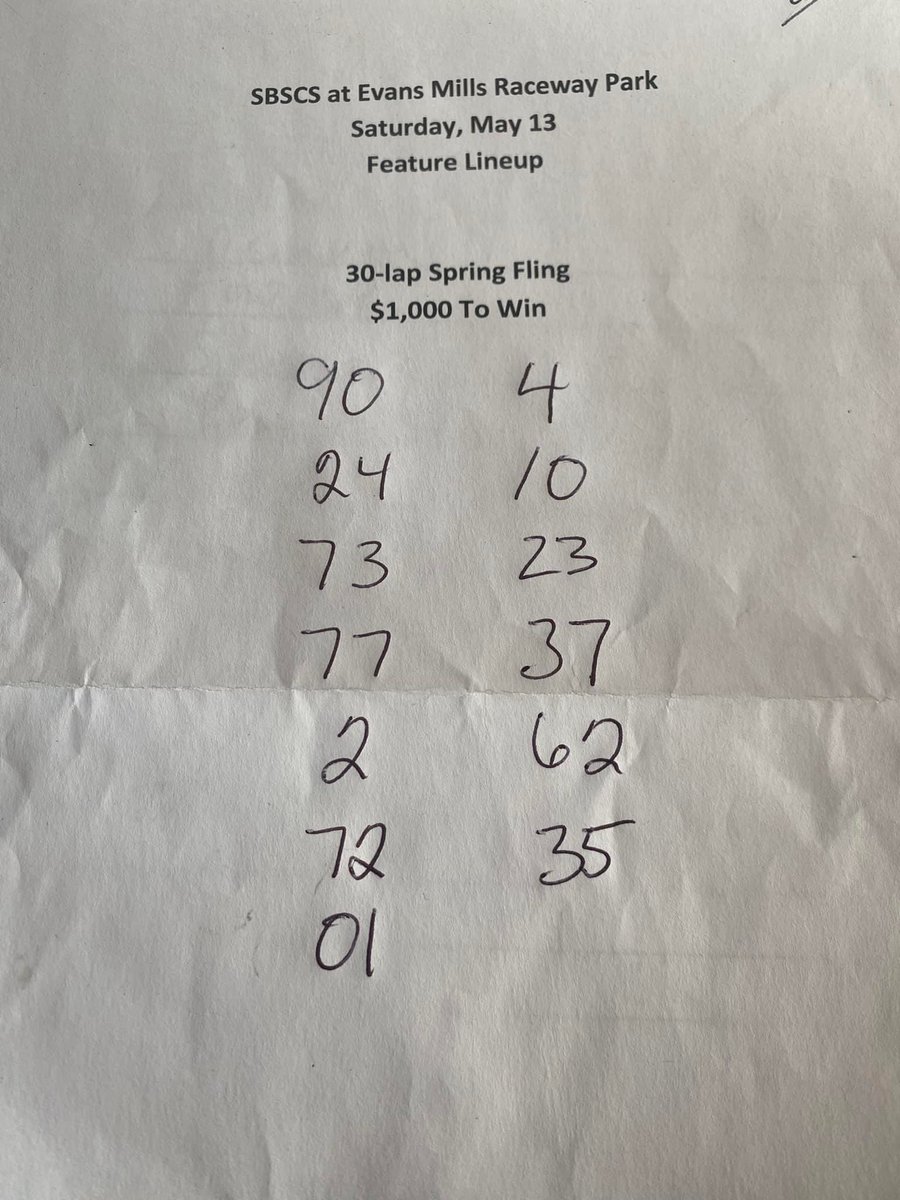 SBSCS at Evans Mills Raceway Park
Saturday, May 13
Feature Lineup
30-lap Spring Fling
$1,000 To Win
90 4
24 10
73 23
77 37
2 62
72 35
01